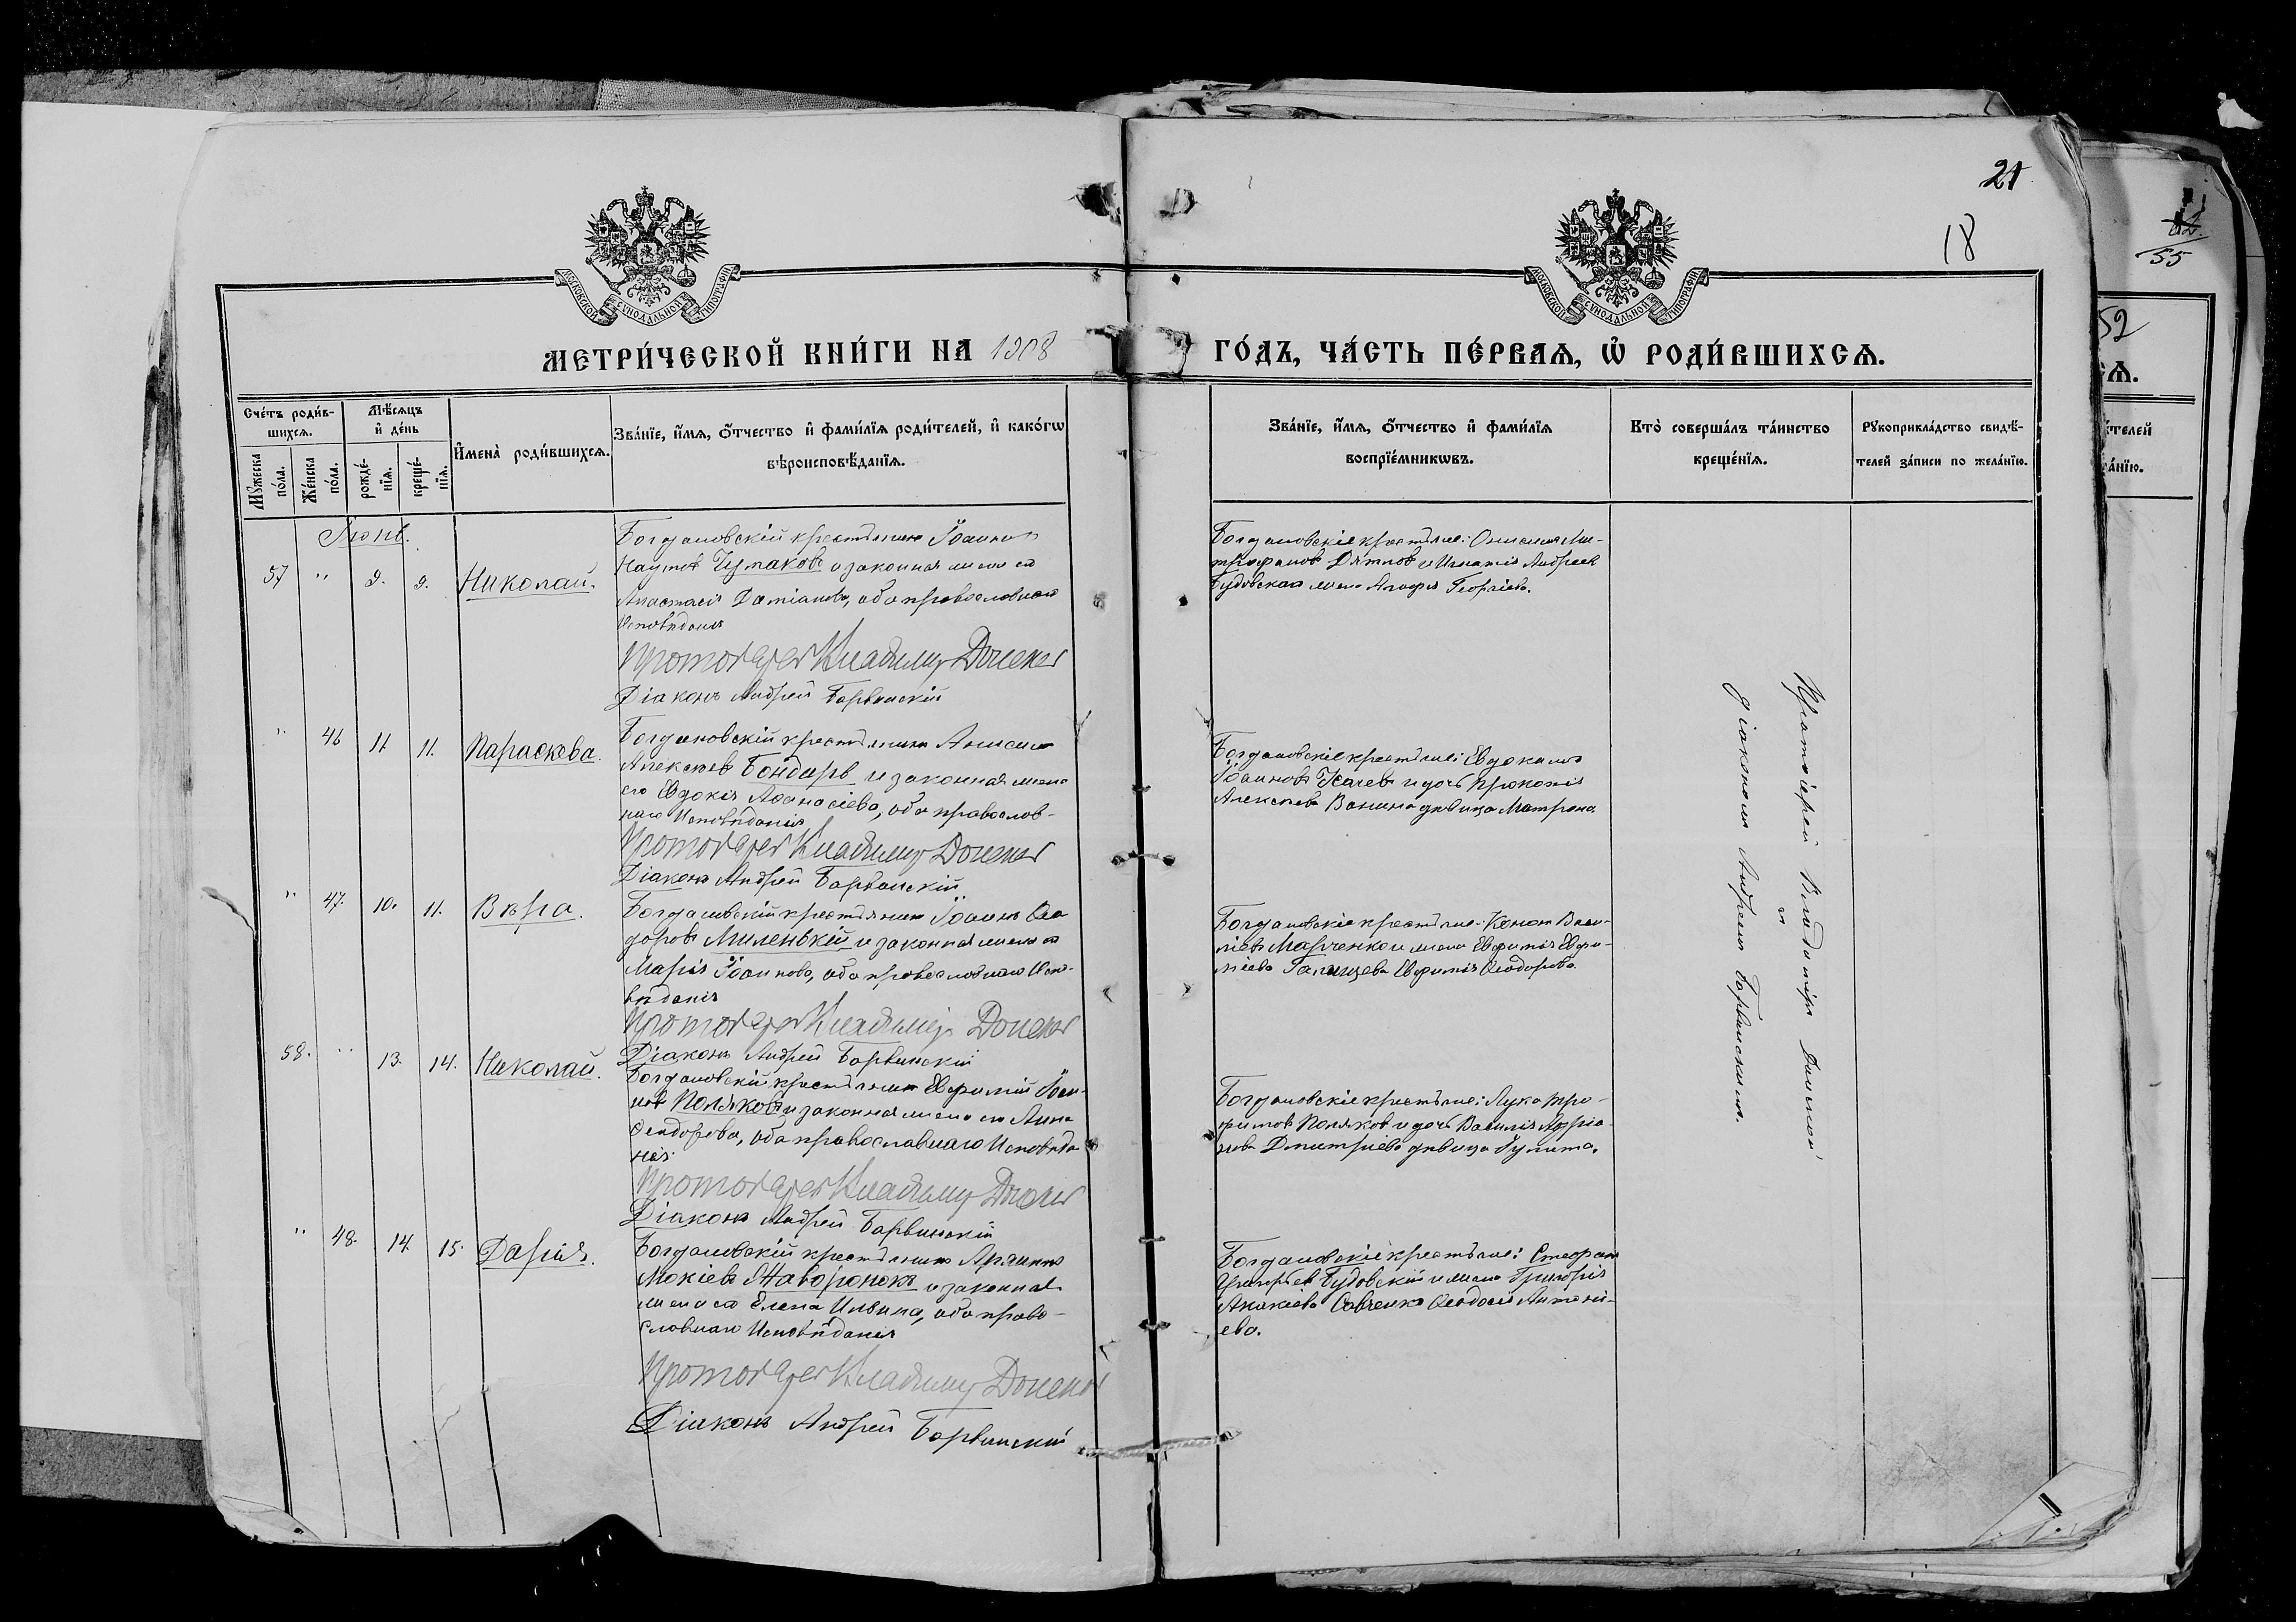 21
18
52
55
52
МОСКОВСКОЙ СѴНОДАЛЬНОЙ ТИПОГРАФІИ
МОСКОВСКОЙ СѴНОДАЛЬНОЙ ТИПОГРАФІИ
МЕТРИ́ЧЕСКОЙ КНИ́ГИ НА 1908
ГО́ДЪ, ЧА́СТЬ ПЕ́РВАЯ, Ѡ РОДИ́ВШИХСЯ.
Сче́тъ роди́в-
шихся.
Мѣ́сяцъ
и де́нь
Му́жеска
по́ла.
Же́нска
по́ла.
рожде́-
нїя.
креще́-
нїя.
И҆мена̀ роди́вшихся.
Зва́нїе, и҆́мя, ѻ҆́тчество и҆ фами́лїя роди́телей, и҆ како́гѡ
вѣроисповѣ́данїя.
Зва́нїе, и҆́мя, ѻ҆́тчество и҆ фами́лїя
воспрїе́мникѡвъ.
Кто̀ соверша́лъ та́инство
креще́нїя.
Рꙋкоприкла́дство свидѣ́-
телей за́писи по жела́нїю.
Іюнь.
57 " 9. 9. Николай.
Богдановскій крестьянинъ Іоаннъ
Наумовъ Чумаковъ и законная жена его
Анастасія Даміанова, оба православнаго
Исповѣданія
Протоіерей Владимиръ Донской
Діаконъ Андрей Барвинскій
Богдановскіе крестьяне: Онисимъ Ми-
трофановъ Дятловъ и Игнатія Андреева
Будовскаго жена Агафія Георгіева.
" 46 11 11. Параскева.
Богдановскій крестьянинъ Анисимъ
Алексѣевъ Бондарь и законная жена
его Евдокія Аѳанасіева, оба православ-
наго Исповѣданія
Протоіерей Владимиръ Донской
Діаконъ Андрей Барвинскій
Богдановскіе крестьяне: Евдокимъ
Іоанновъ Усачевъ и дочь Прокопія
Алексѣева Ванина дѣвица Матрона
" 47. 10. 11. Вѣра.
Богдановскій крестьянинъ Іоаннъ Ѳео
доровъ Миленькій и законная жена его
Марія Іоаннова, оба православнаго Испо-
вѣданія
Протоіерей Владимиръ Донской
Діаконъ Андрей Барвинскій
Богдановскіе крестьяне: Кононъ Васи-
ліевъ Марченко и жена Евфимія Евфи-
міева Евфимія Ѳеодорова.
58. " 13. 14. Николай.
Богдановскій крестьянинъ Евфимій Іоан-
новъ Поляковъ и законная жена его Анна
Ѳеодорова, оба православнаго Исповѣда
нія.
Протоіерей Владимиръ Донской
Діаконъ Андрей Барвинскій
Богдановскіе крестьяне: Лука Тро-
фимовъ Поляковъ и дочь Василія Адріа
нова Дмитріева дѣвица Іулитта.
" 48. 14. 15. Дарія.
Богдановскій крестьянинъ
Мокіевъ Жаворонокъ и законная
жена его Елена Ильина, оба право-
славнаго Исповѣданія
Протоіерей Владимиръ Донской
Діаконъ Андрей Барвинскій
Богдановскіе крестьяне: Стефанъ
Григорьевъ Будовскій и жена Григорія
Акакіева Савченко Ѳеодосія Антоні-
ева.
Протоіерей Владимиръ Донской
и
діакономъ Андреемъ Барвинскимъ.